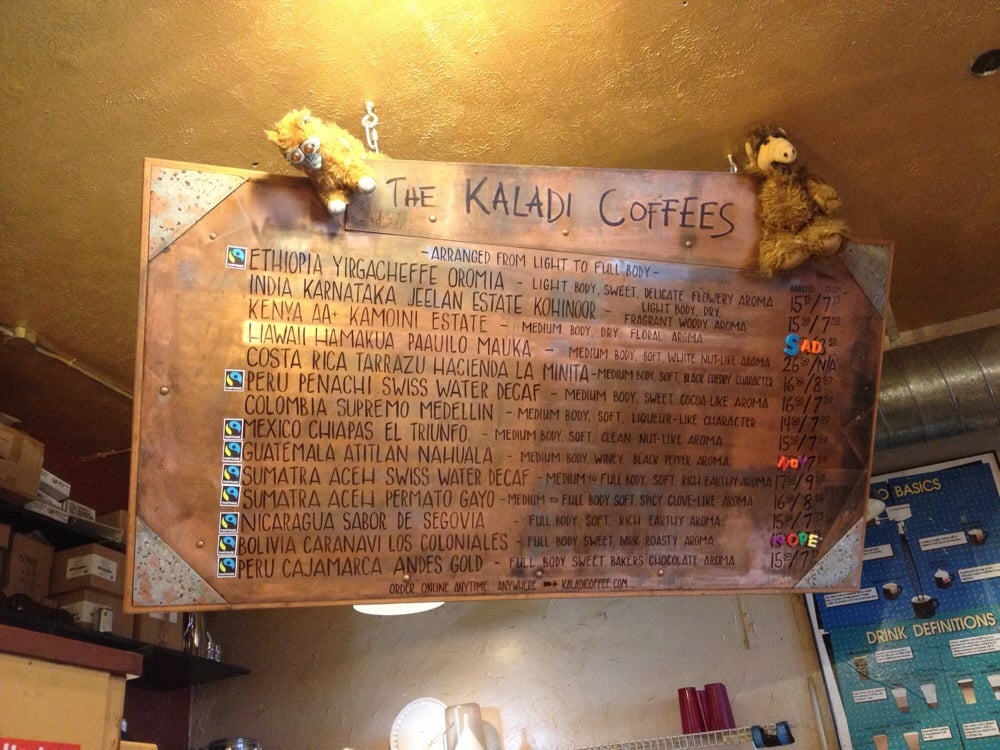 THE KALADI COFFEES
-ARRANGED FROM LIGHT TO FULL BODY-
ETHIOPIA YIRGACHEFFE OROMIA - LIGHT BODY, SWEET, DELICATE FLOWERY AROMA
INDIA KARNATAKA JEELAN ESTATE KOHINOOR - LIGHT BODY, DRY, FRAGRANT WOODY AROMA
KENYA AA+ KAMOINI ESTATE - MEDIUM BODY, DRY, FLORAL AROMA SAD
HAWAII HAMAKUA PAAUILO MAUKA - MEDIUM BODY, SOFT, WHITE NUT-LIKE AROMA /N/A
COSTA RICA TARRAZU HACIENDA LA MINITA - MEDIUM BODY, SOFT, BLACK CHERRY CHARACTER
PERU PENACHI SWISS WATER DECAF - MEDIUM BODY, SWEET, COCOA-LIKE AROMA
COLOMBIA SUPREMO MEDELLIN - MEDIUM BODY, SOFT, LIQUEUR-LIKE CHARACTER
MEXICO CHIAPAS EL TRIUNFO - MEDIUM BODY, SOFT, CLEAN NUT-LIKE AROMA
GUATEMALA ATITLAN NAHUALA - MEDIUM BODY, WINEY, BLACK PEPPER AROMA
SUMATRA ACEH SWISS WATER DECAF - MEDIUM TO FULL BODY, SOFT, RICH EARTHY AROMA
SUMATRA ACEH PERMATO GAYO - MEDIUM TO FULL BODY SOFT, SPICY CLOVE-LIKE AROMA
NICARAGUA SABOR DE SEGOVIA - FULL BODY, SOFT, RICH EARTHY AROMA
BOLIVIA CARANAVI LOS COLONIALES - FULL BODY, SWEET, DARK ROASTY AROMA NOPE
PERU CAJAMARCA ANDES GOLD - FULL BODY SWEET, BAKERS CHOCOLATE AROMA
ORDER ONLINE ANYTIME, ANYWHERE ➽ KALADICOFFEE.COM
BASICS
DRINK DEFINITIONS